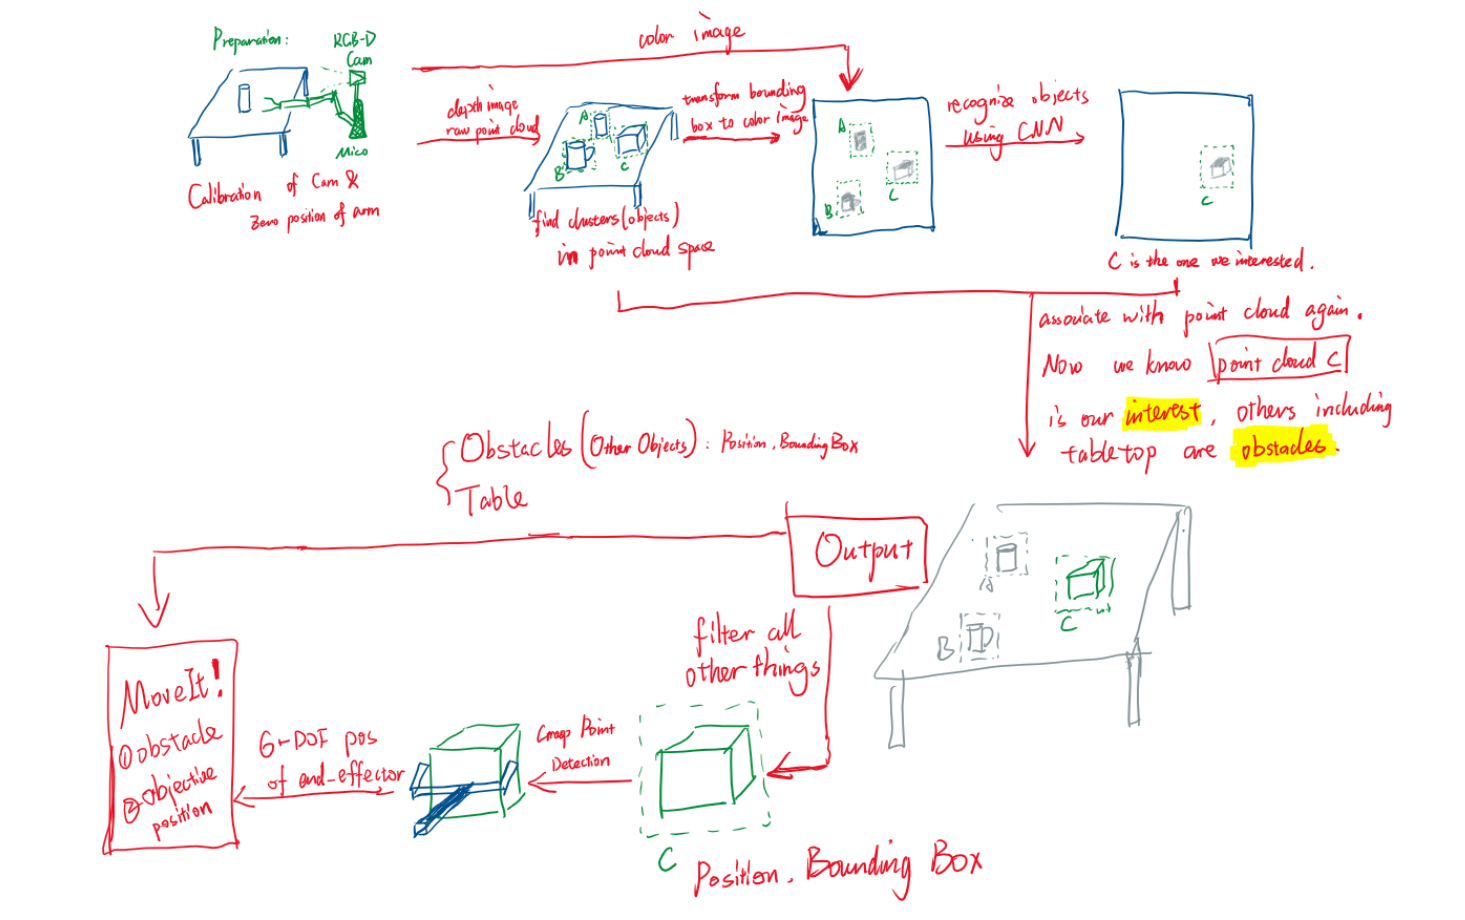 Preparation:
RGB-D
Cam
Mico
Calibration of Cam &
Zero position of arm
color image
depth image
raw point cloud
A
B
C
find clusters (objects)
in point cloud space
transform bounding
box to color image
A
B
C
recognize objects
using CNN
C
C is the one we interested.
associate with point cloud again.
Now we know point cloud C
is our interest, others including
tabletop are obstacles.
Obstacles (Other Objects) : Position, Bounding Box
Table
Output
A
B
C
filter all
other things
C
Position, Bounding Box
Grasp Point
Detection
6-DOF pos
of end-effector
MoveIt!
① obstacle
② objective
position